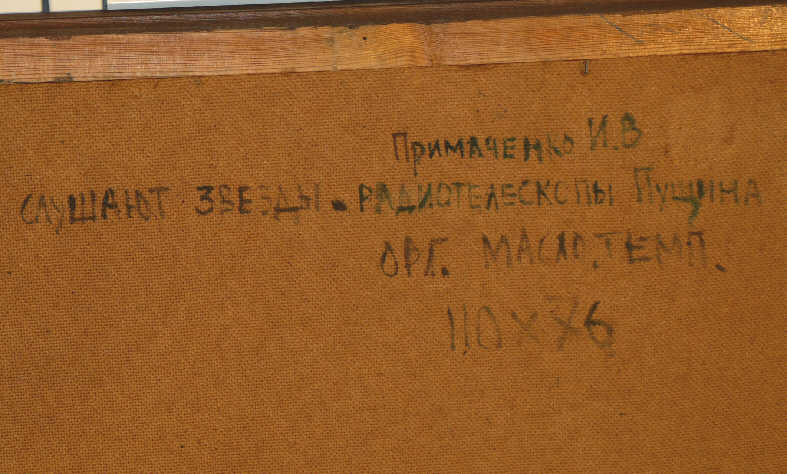 Примаченко И.В
СЛУШАЮТ ЗВЕЗДЫ. РАДИОТЕЛЕСКОПЫ ПУЩИНА
ОРГ. МАСЛО.ТЕМП.
110X76